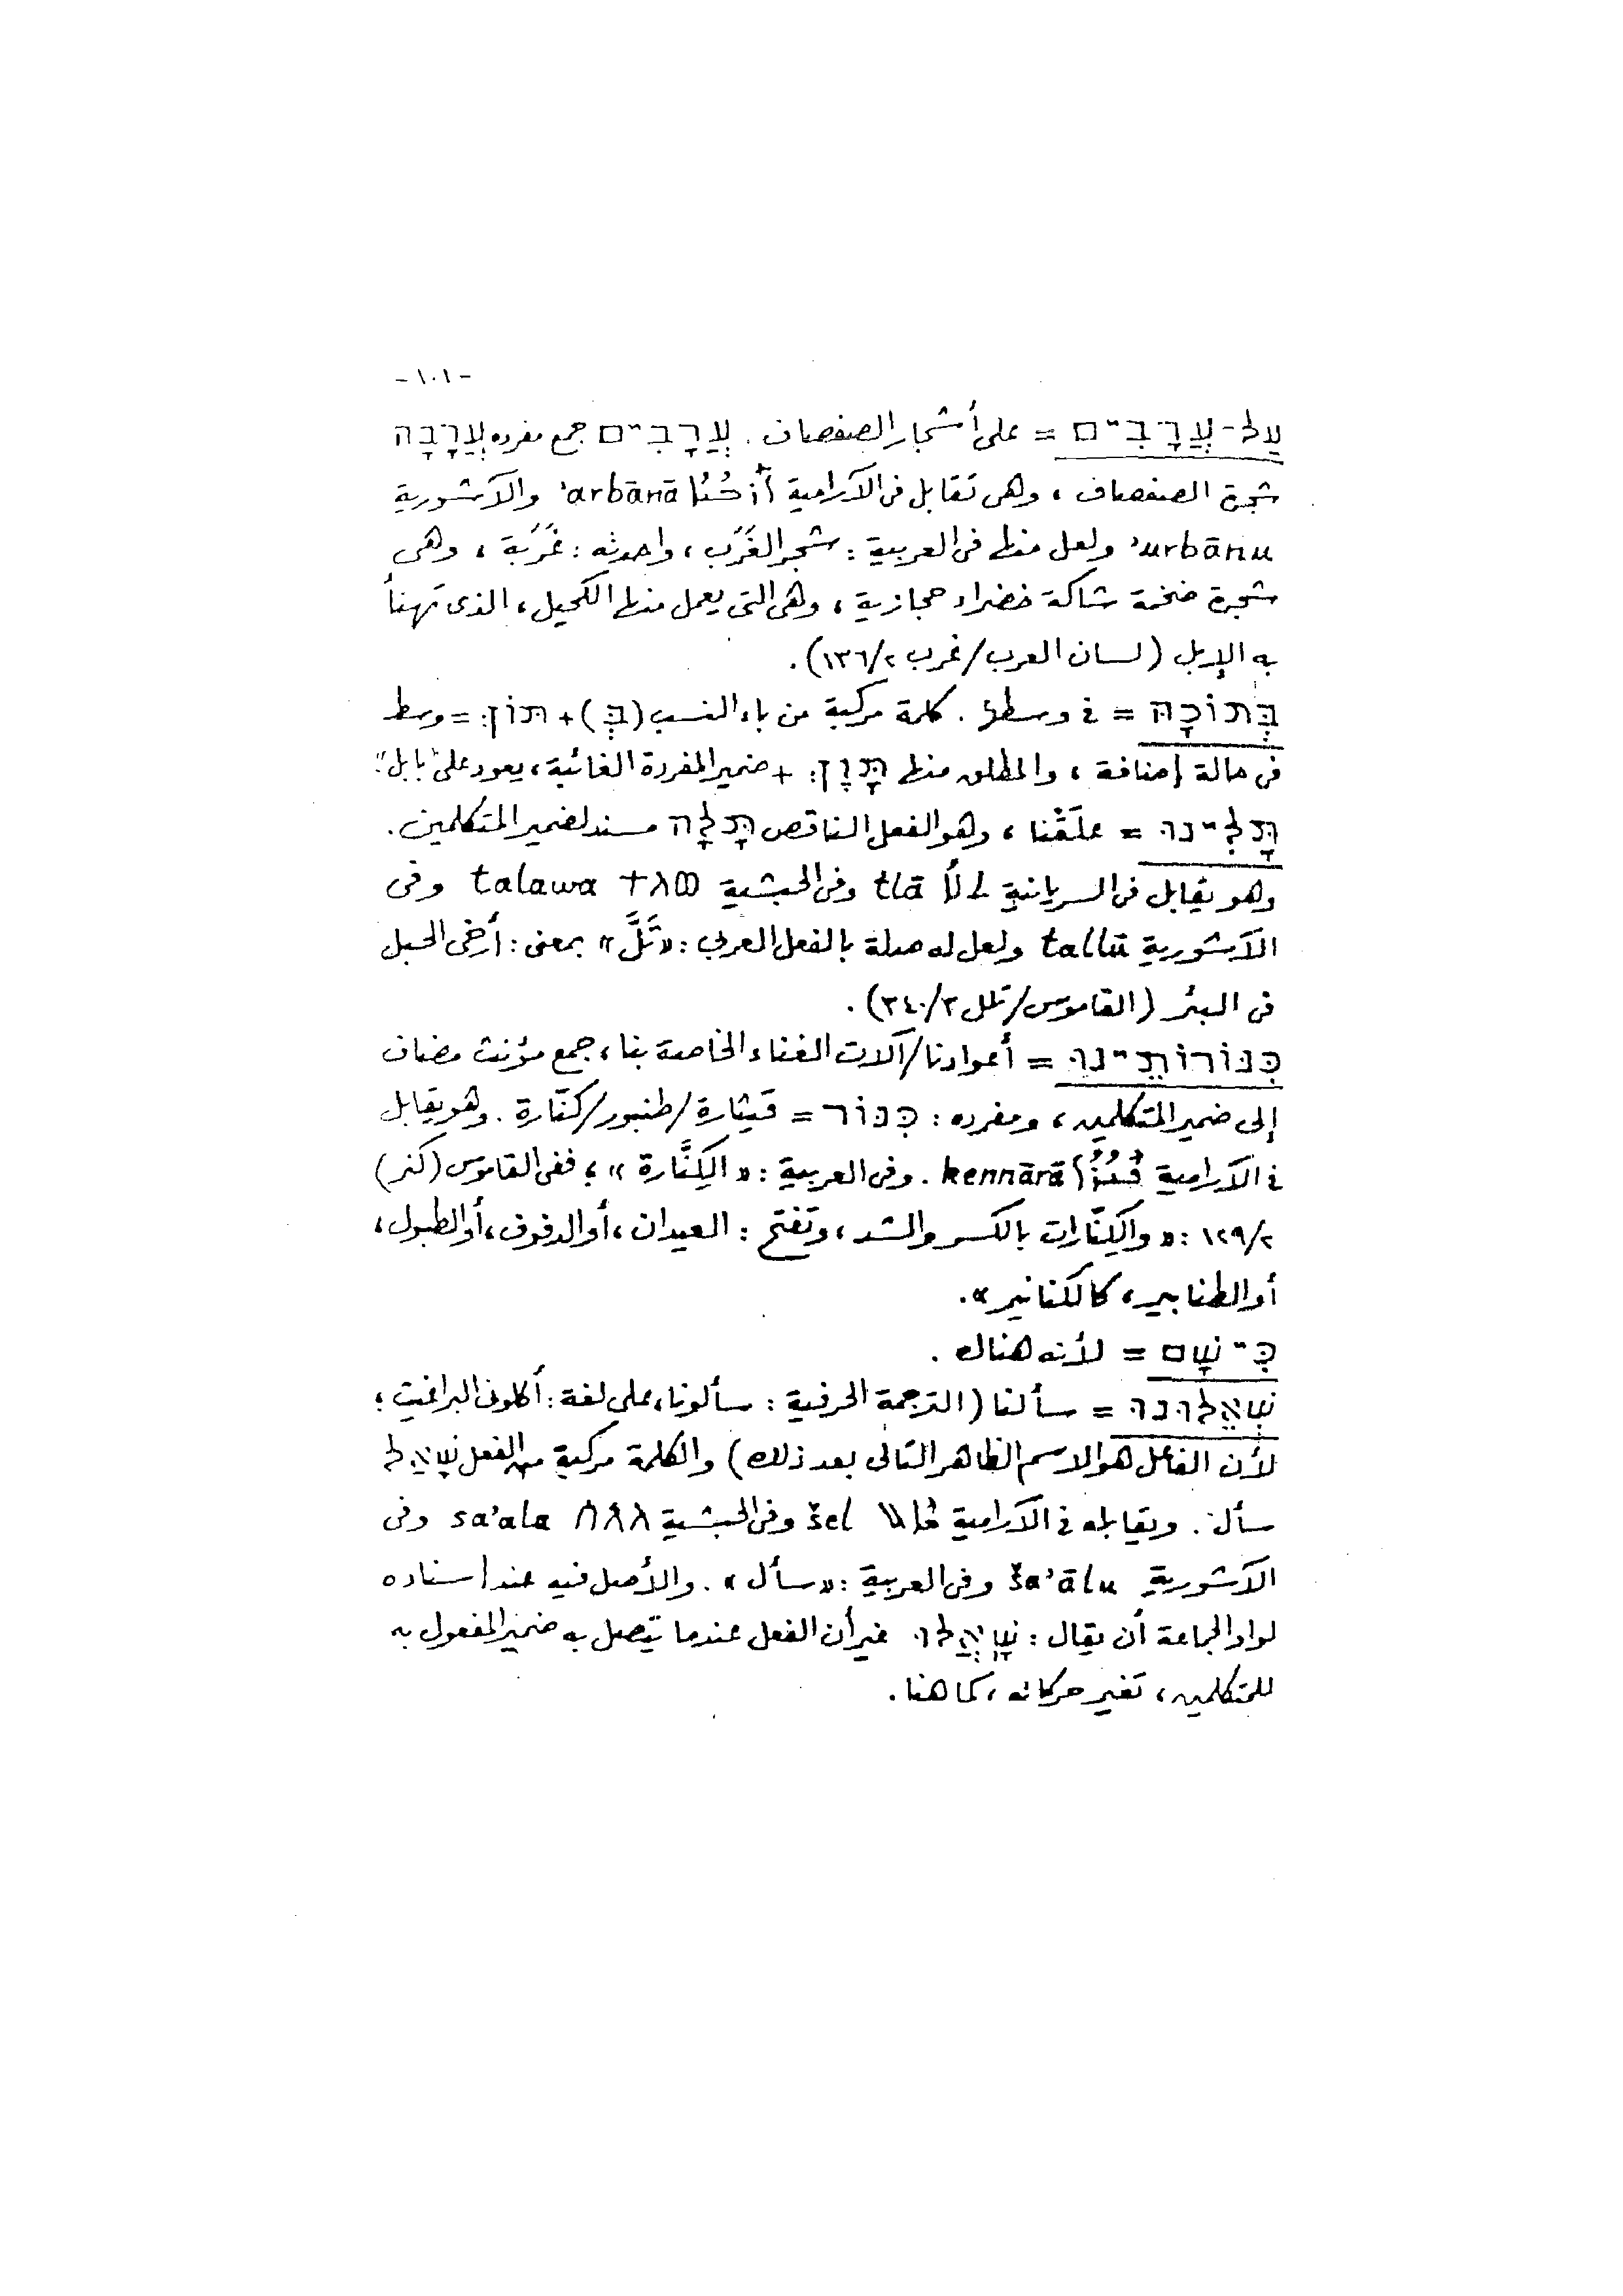 -١٠١-
עַל־עֲרָבִים = على أشجار الصفصاف. עֲרָבִים جمع مفرده עֲרָבָה
شجرة الصفصاف ، وهى تقابل فى الآرامية ܐܰܪܒܳܢܳܐ ʼarbānā والآشورية
ʼurbānu ولعل منها فى العربية : شجر الغَرَب ، واحدته : غَرَبَة ، وهى
شجرة ضخمة شاكة خضراء حجازية ، وهى التى يعمل منها الكحيل ، الذى تهنأ
به الإبل (لسان العرب/غرب ١٣٦/٢) .
בְּתוֹכָהּ = فى وسطها . كلمة مركبة من باء النسب (בְּ) + תוֹךְ = وسط
فى حالة إضافة ، والمطلق منها תָּוֶךְ + ضمير المفردة الغائبة ، يعود على "بابل" .
תָּלִינוּ = علَقْنا ، وهو الفعل الناقص תָּלָה مسند لضمير المتكلمين .
وهو يقابل فى السريانية ܬܠܳܐ tlā وفى الحبشية ተለወ talawa وفى
الآشورية tallū ولعل له صلة بالفعل العربى : «تَلَّ» بمعنى : أرخى الحبل
فى البئر (القاموس/تلل ٣٤٠/٣) .
כִּנּוֹרוֹתֵינוּ = أعوادنا/آلات الغناء الخاصة بنا ، جمع مؤنث مضاف
إلى ضمير المتكلمين ، ومفرده : כִּנּוֹר = قيثارة/طنبور/كنّارة . وهو يقابل
فى الآرامية ܟܶܢܳܪܳܐ kennārā . وفى العربية : «الكِنَّارة» ؛ ففى القاموس (كنر)
١٢٩/٢ : «والكِنّارات بالكسر والشد ، وتفتح : العيدان ، أو الدفوف ، أو الطبول ،
أو الطنابير ، كالكنانير» .
כִּי שָׁם = لأنه هناك .
שְׁאֵלוּנוּ = سألنا (الترجمة الحرفية : سألونا ، على لغة : أكلونى البراغيث ؛
لأن الفاعل هو الاسم الظاهر التالى بعد ذلك) والكلمة مركبة من الفعل שָׁאַל
سأل . ويقابله فى الآرامية ܫܶܐܠ šel وفى الحبشية ሰአለ saʼala وفى
الآشورية šaʼālu وفى العربية : «سأل» . والأصل فيه عند إسناده
لواو الجماعة أن يقال : שָׁאֲלוּ غير أن الفعل عندما يتصل به ضمير المفعول به
للمتكلمين ، تغير حركاته ، كما هنا .